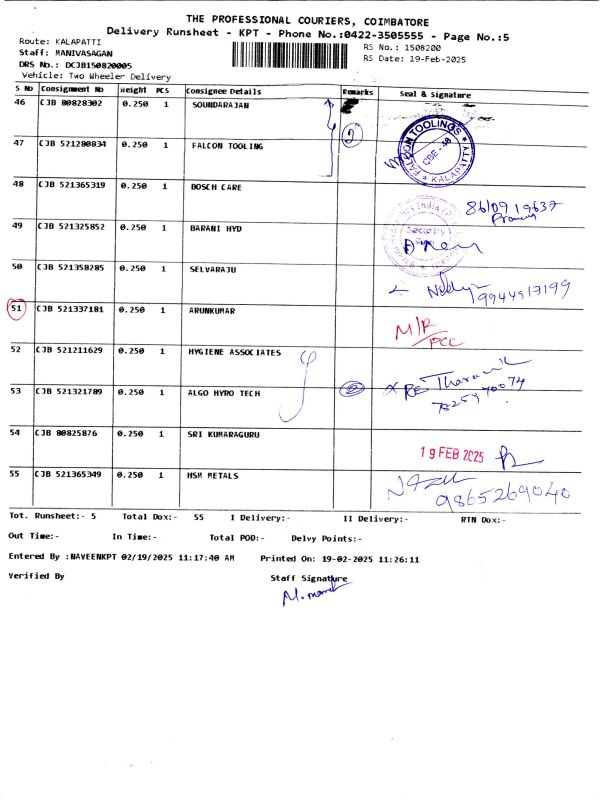 THE PROFESSIONAL COURIERS, COIMBATORE
Delivery Runsheet - KPT - Phone No.:0422-3505555 - Page No.:5
Route: KALAPATTI RS No.: 1508200
Staff: MANIVASAGAN RS Date: 19-Feb-2025
DRS No.: DCJB150820005
Vehicle: Two Wheeler Delivery
S No Consignment No Weight PCS Consignee Details Remarks Seal & Signature
46 CJB 80828302 0.250 1 SOUNDARAJAN
47 CJB 521280834 0.250 1 FALCON TOOLING 2 FALCON TOOLINGS CBE - 48 KALAPATTI
48 CJB 521365319 0.250 1 BOSCH CARE
49 CJB 521325852 0.250 1 BARANI HYD Security
50 CJB 521358285 0.250 1 SELVARAJU 9944517199
51 CJB 521337181 0.250 1 ARUNKUMAR M/R PCC
52 CJB 521211629 0.250 1 HYGIENE ASSOCIATES
53 CJB 521321789 0.250 1 ALGO HYRO TECH 2
54 CJB 80825876 0.250 1 SRI KUMARAGURU 19 FEB 2025
55 CJB 521365349 0.250 1 HSM METALS 9865269040
Tot. Runsheet:- 5 Total Dox:- 55 I Delivery:- II Delivery:- RTN Dox:-
Out Time:- In Time:- Total POD:- Delvy Points:-
Entered By :NAVEENKPT 02/19/2025 11:17:40 AM Printed On: 19-02-2025 11:26:11
Verified By Staff Signature